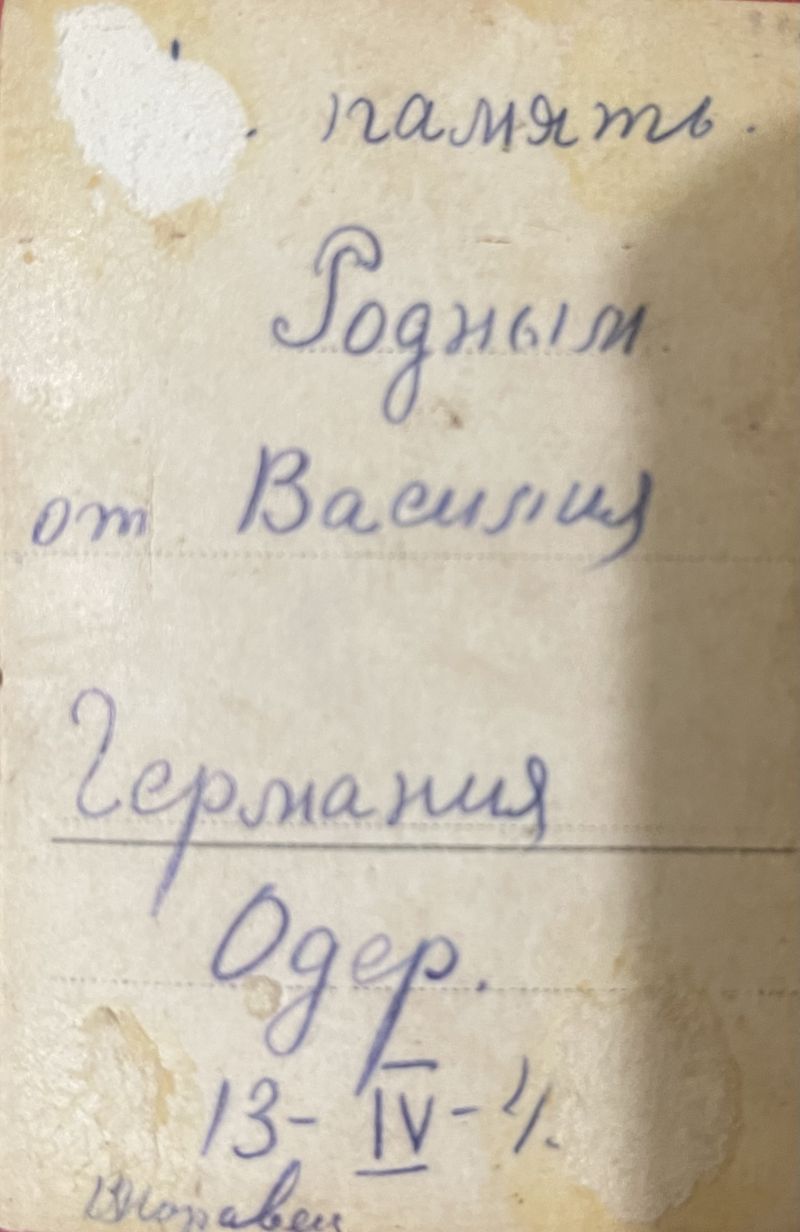 память.
Родным
от Василия
Германия
Одер.
13-IV-4